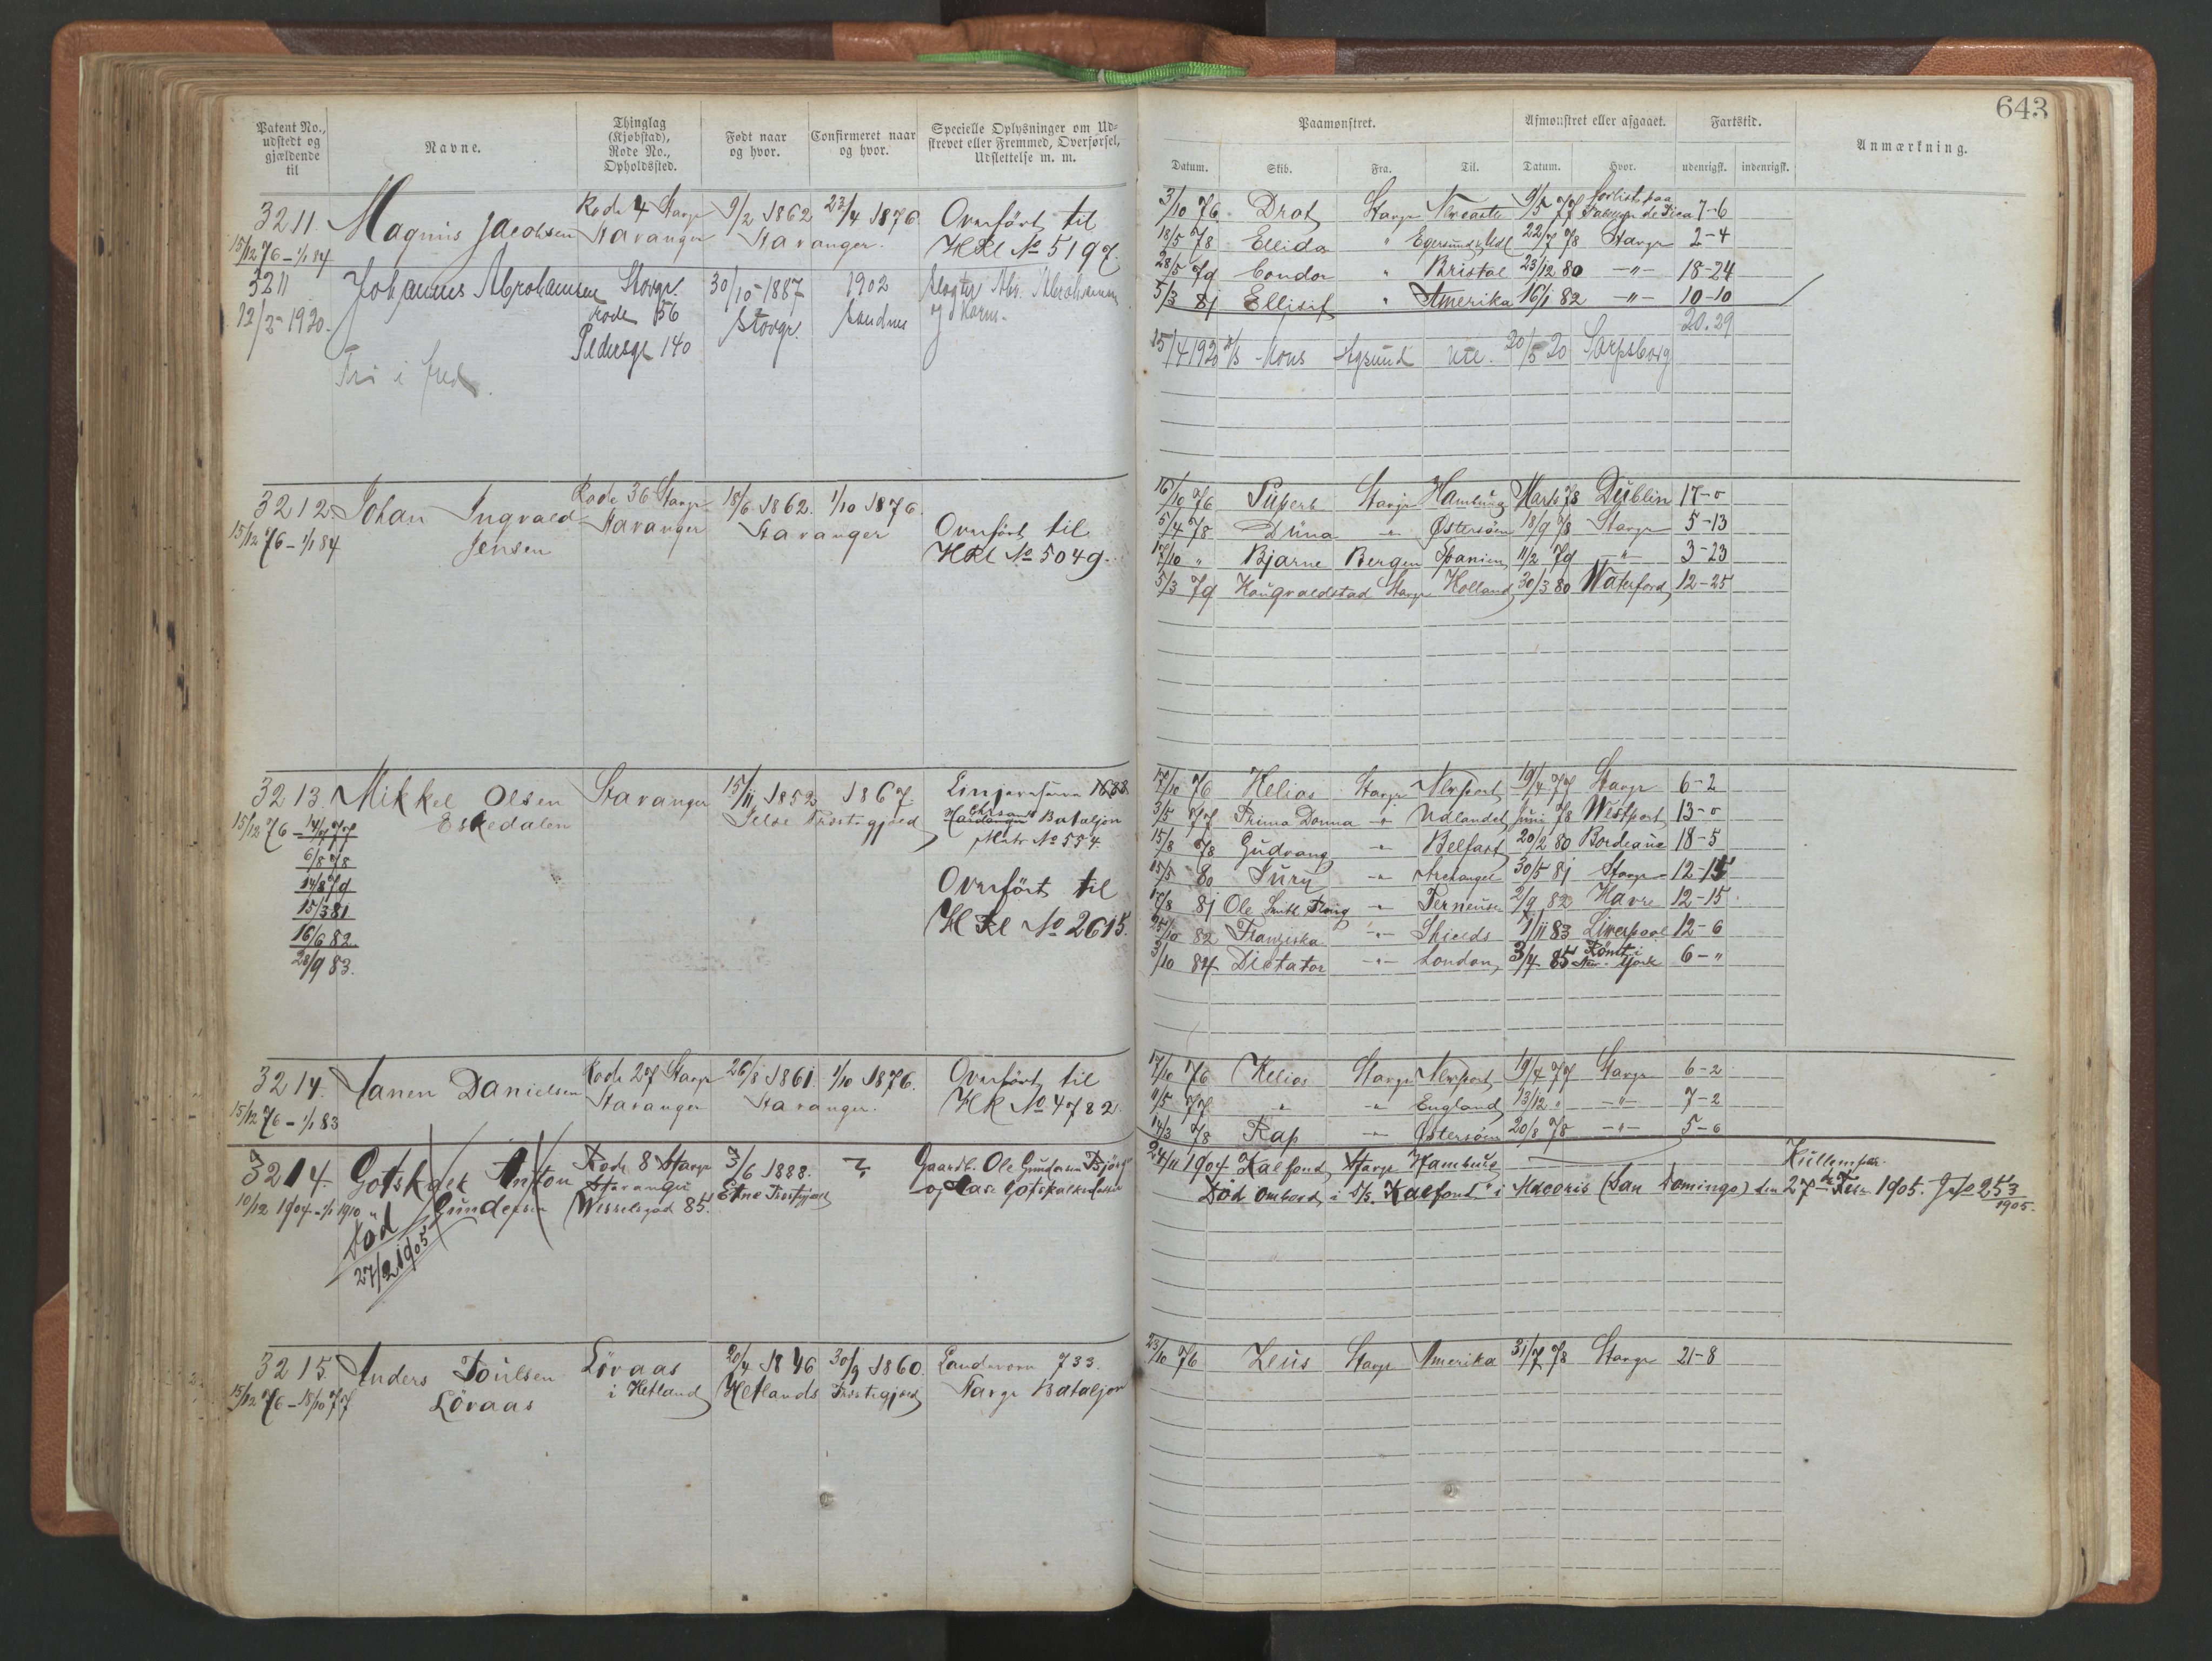 643
Patent No., udstedt og gjældende til
Navne.
Thinglag (Kjøbstad), Rode No., Opholdssted.
Født naar og hvor.
Confirmeret naar og hvor.
Specielle Oplysninger om Udstrevet eller Fremmed, Overførsel, Udslettelse m. m.
Paamønstret.
Afmønstret eller afgaaet.
Fartstid.
Anmærkning.
Datum. Skib. Fra. Til. Datum. Hvor. udenrigsk. indenrigsk.
3211. Magnus Jacobsen Rode 4 Stavgr 9/2 1862 23/4 1876. Overført til
15/12 76 – 1/1 84 Stavanger Stavanger. HRl No 5197.
3/10 76 Drot Stavgr Newcastle 9/5 77 Forlist paa 7-6
18/5 78 Ellida " Egersund & Udl 22/7 78 Stavgr 2-4
28/5 79 Condor " Bristol 23/12 80 -"- 18-24
5/3 81 Ellisif " Amerika 16/1 82 -"- 10-10
20.29
3211 Johannes Abrahamsen Stavgr. 30/10-1887 1902
12/2-1920. rode 56 Stavgr. Sandnes
Pedersgt 140
Fri i fred
15/4 1920 Mons Egsund Utl. 20/5 20 Sarpsborg
3212. Johan Ingvald Rode 36 Stavgr 18/6 1862. 1/10 1876.
15/12 76 – 1/1 84 Jensen Stavanger Stavanger
Overført til
HRl No 5049.
16/10 76 Superb Stavgr Hamburg Marts 78 Dublin 17-0
5/4 78 Düna -"- Østersøen 18/9 78 Stavgr 5-13
17/10 " Bjarne Bergen Spanien 11/2 79 -"- 3-23
5/3 79 Haugvaldstad Stavgr Holland 30/3 80 Waterford 12-25
3213. Mikkel Olsen Stavanger 15/11 1852 1867.
Eskedalen Præstegjæld
15/12 76 – 14/4 77
6/8 78
14/8 79
15/3 81
16/6 82
28/9 83.
Chrsands Bataljon
Matr No 554
Overført til
HRl No 2615.
17/10 76 Helios Stavgr Newport 19/4 77 Stavgr 6-2
3/5 77 Prima Donna -"- Udlandet Juni 78 Westport 13-0
15/8 78 Gudvang -"- Belfast 20/2 80 Bordeaux 18-5
15/5 80 Jury -"- Archangel 30/5 81 Stavgr 12-15
17/8 81 Ole Smith Ploug -"- Terneuse 2/9 82 Havre 12-15
25/10 82 Franziska -"- Shields 1/11 83 Liverpool 12-6
3/10 84 Dictator -"- London 3/4 85 Rømt i New York 6-"
3214. Danielsen Rode 27 Stavgr 26/8 1861. 1/10 1876. Overført til
15/12 76 – 1/1 83 Stavanger Stavanger. HR No 4782.
17/10 76 Helios Stavgr Newport 19/4 77 Stavgr 6-2
11/5 77 " -"- England 13/12 " -"- 7-2
14/3 78 Rap -"- Østersøen 20/8 78 -"- 5-6
3214. Gotskalk Anton Rode 8 Stavgr 3/6 1888. ? Gaardb. Ole Gundersen
10/12 1904 – 1/1 1910 Gundersen Stavanger Etne Præstegjæld og
Wesselsgad 85.
Død
27/2 1905
24/11 1904 Kalfond Stavgr Hamburg
Død ombord i D/S. "Kalfond" i Macoris (San Domingo) den 27de Febr 1905. Jno 253/1905.
3215. Anders Poulsen Löraas 20/4 1846 30/9 1860. Landevern 733.
15/12 76 – 18/10 77 Löraas i Hetland Hetlands Præstegjæld Stavgr Bataljon
23/10 76 Zeus Stavgr Amerika 31/7 78 Stavgr 21-8